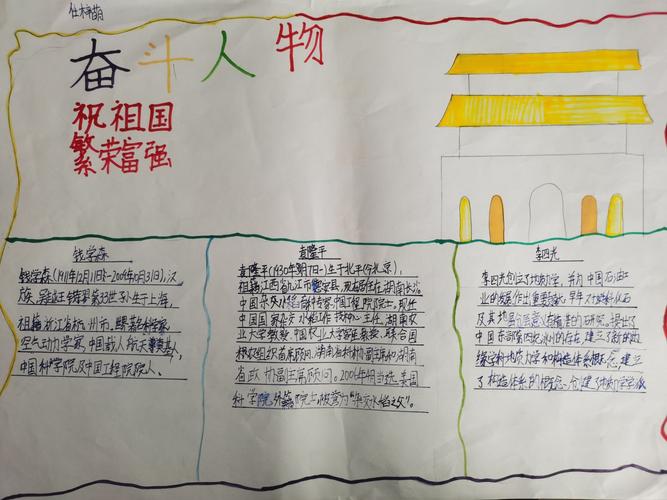 奋斗人物
祝祖国
繁荣富强
钱学森
钱学森(1911年12月11日-2009年10月31日),汉
族,吴越王钱镠第33世孙,生于上海,
祖籍浙江省杭州市。
空气动力学家,中国载人航天奠基人,
中国科学院及中国工程院院
袁隆平
袁隆平(1930年9月7日-)生于北平(今北京),
祖籍江西省九江市德安县,现居住在湖南长沙
中国杂交水稻育种专家,中国工程院院士,现任
中国国家杂交水稻工作技术中心主任,湖南农
业大学教授,中国农业大学客座教授,联合国
粮农组织首席顾问,湖南省科协副主席和湖南
省政协副主席顾问。2006年4月当选美国
科学院外籍院士,被誉为“杂交水稻之父”。
李四光
李四光创立了地质力学,并为中国石油工
业的发展作出重要贡献,早年对
提出了
中国东部第四纪冰川的存在,建立了新的边
缘学科地质力学和构造体系概念,建立
了构造体系的概念,创建了地质力学学派